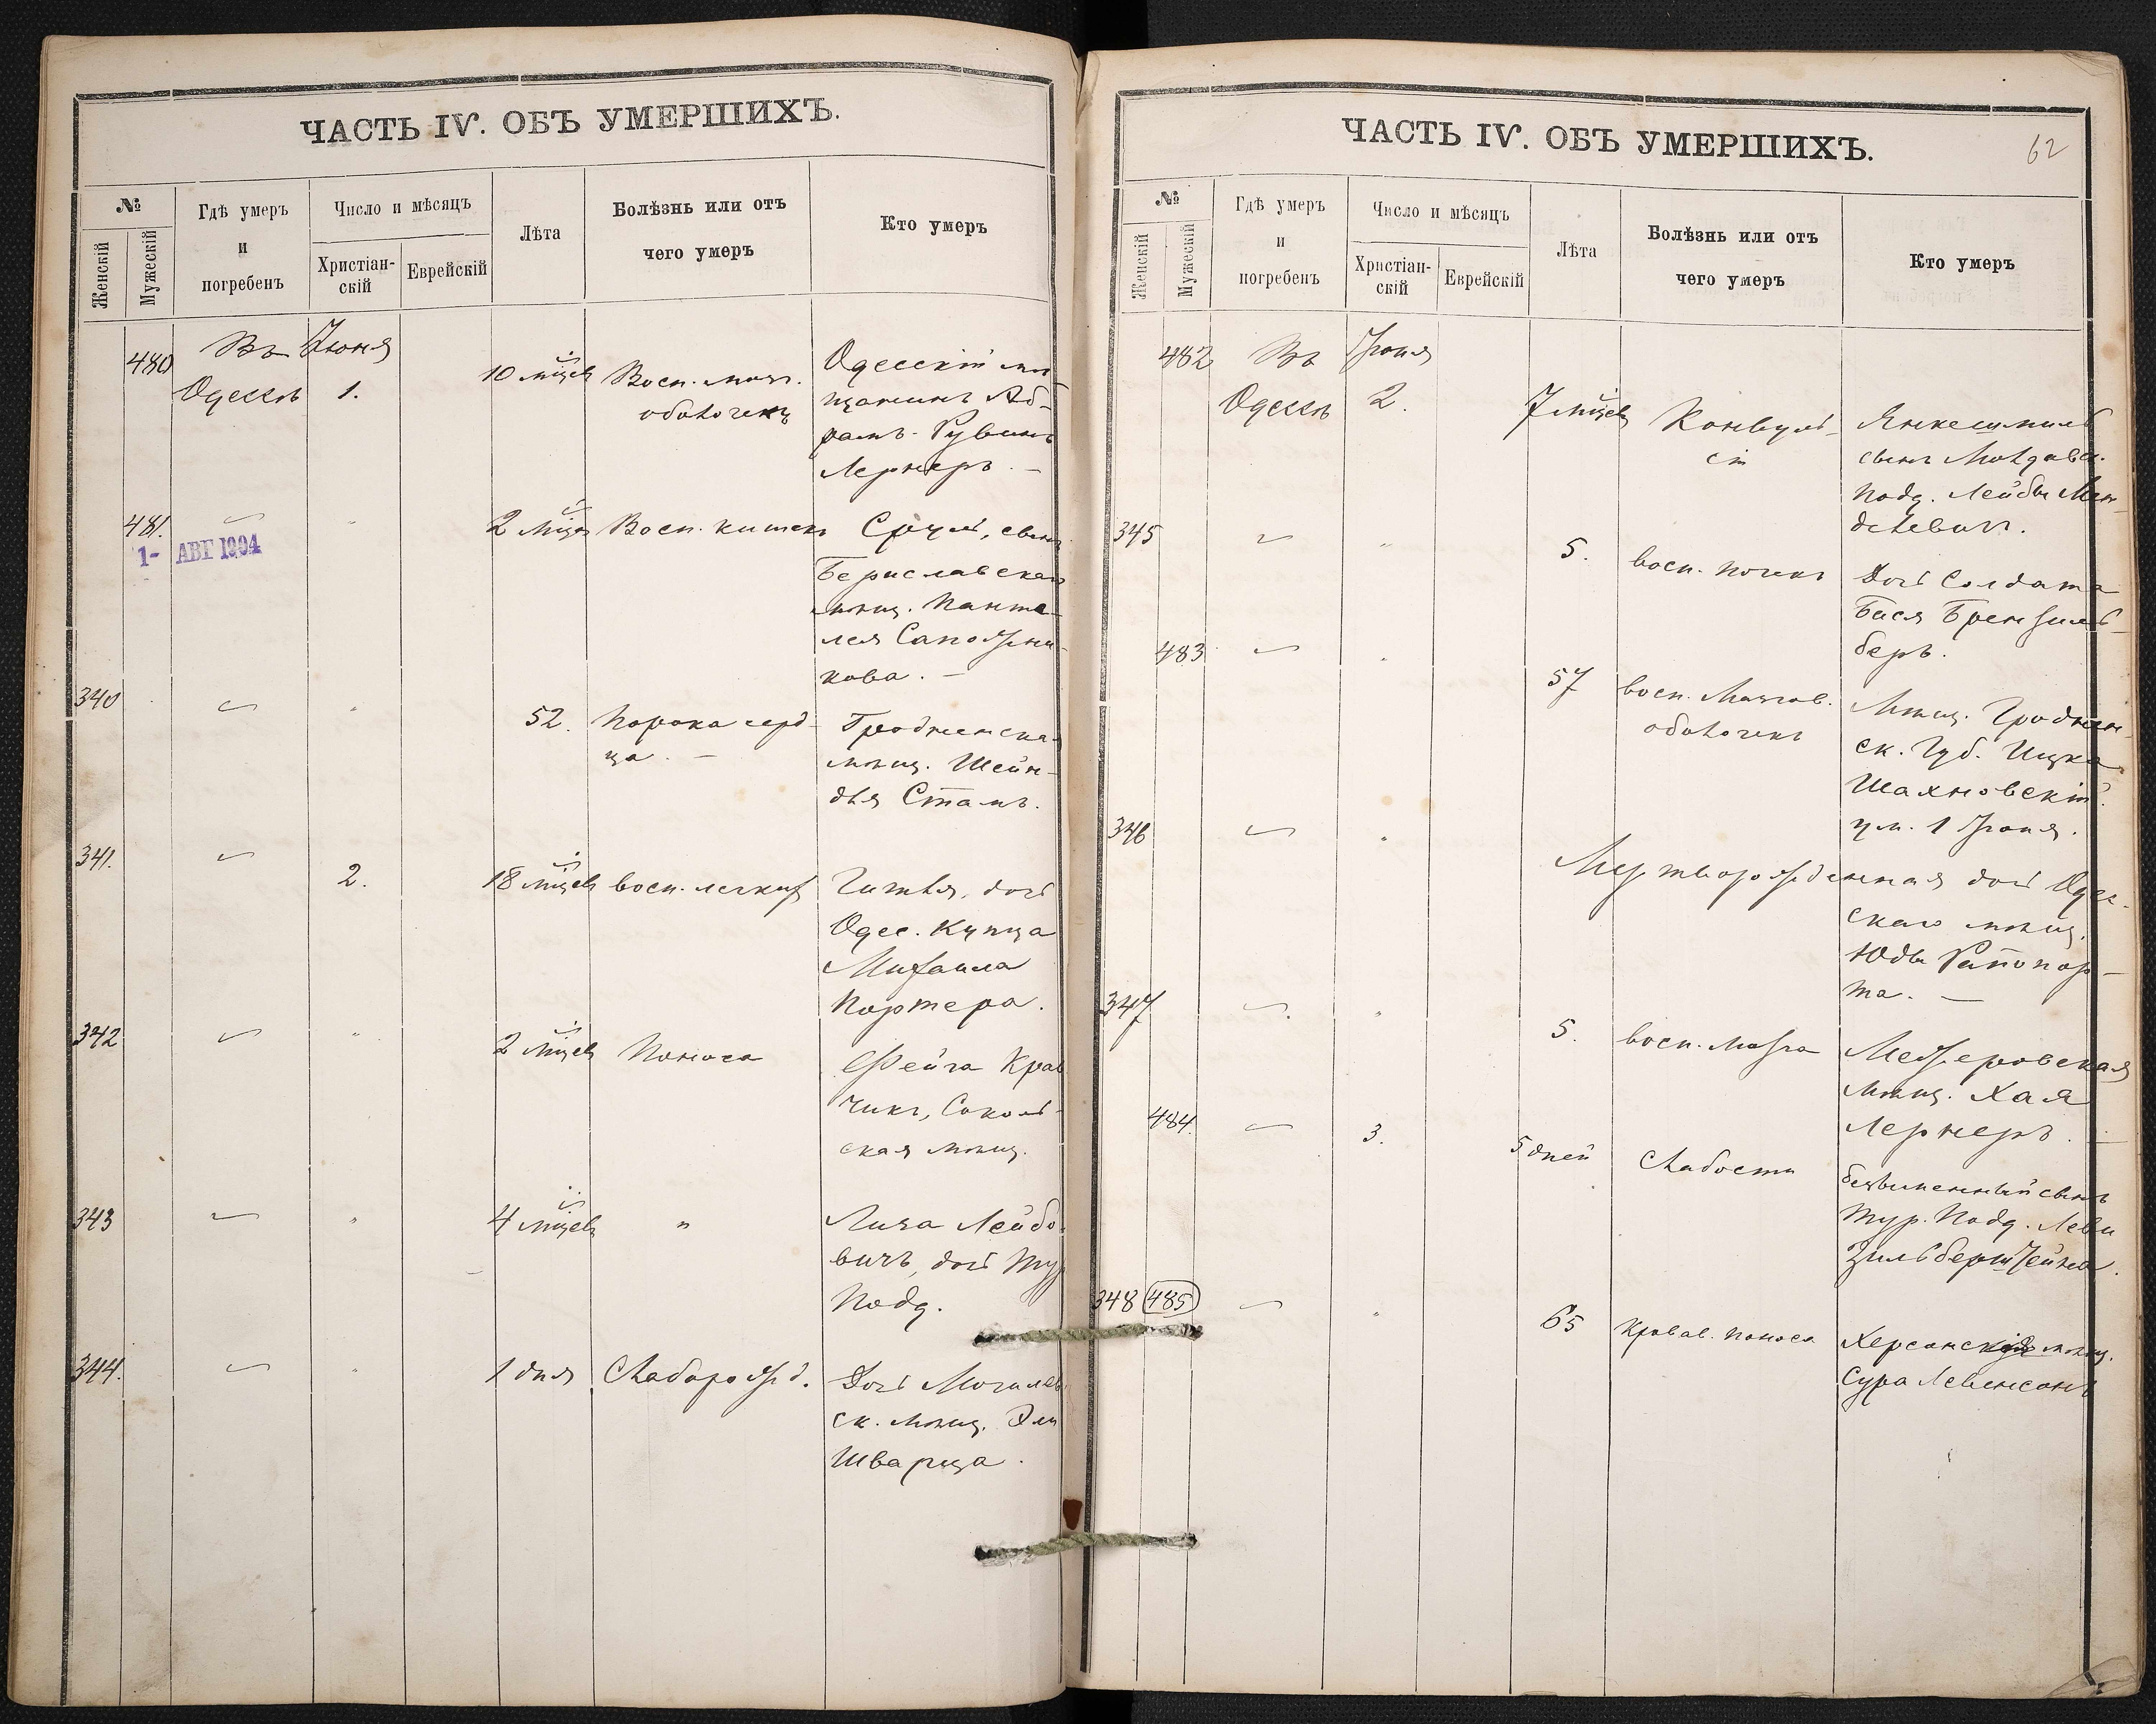 ЧАСТЬ IV. ОБЪ УМЕРШИХЪ.
№
Женскій
Мужескій
Гдѣ умеръ
и
погребенъ
Число и мѣсяцъ
Христіан-
скій
Еврейскій
Лѣта
Болѣзнь или отъ
чего умеръ
Кто умеръ
480 Въ Іюня
Одессѣ 1.
10 мѣсцевъ Восп. мозг.
оболочекъ
Одесскій мѣ-
щанинъ Аб-
рамъ-Рувинъ
Лернеръ. —
481. 2 Восп. кишекъ Сруль, сынъ
1- АВГ 1904
Бериславскаго
мѣщ. Панте-
лея Сапожни-
кова. —
340 52. Порока серд-
ца. —
Гродненская
мѣщ. Шейн-
для Стамъ.
341. 2. 18 мѣсцевъ восп. легкихъ Гитля, дочь
Одес. Купца
Михаила
Портера.
342 2 мѣсцевъ Поноса
Фейга Крав
чикъ, Соколь-
ская мѣщ.
343 4 мѣсцевъ "
Лиза Лейбо-
вичъ, дочь Тур
Подд.
344. 1 дня Слаборожд. Дочь Могилев
ск. мѣщ. Эли
Шварца.
ЧАСТЬ IV. ОБЪ УМЕРШИХЪ.
62
№
Женскій
Мужескій
Гдѣ умеръ
и
погребенъ
Число и мѣсяцъ
Христіан-
скій
Еврейскій
Лѣта
Болѣзнь или отъ
чего умеръ
Кто умеръ
482 Въ Іюня
Одессѣ 2.
7 мѣсцевъ Конвуль-
сій
Янкешмиль
сынъ Молдавск.
подд. Лейбы Мен-
делевич.
345 5. восп. почекъ Дочь Солдата
Бася Брензиль-
беръ.
483 57 восп. Мозгов.
оболочекъ
Мѣщ. Гроднен-
ск. Губ. Ицко
Шахновскій.
ум. 1 Іюня.
346 Мертворожденная дочь Одес-
скаго мѣщ.
Юды Рапопор-
та. —
347 5. восп. Мозга Межеровская
мѣщ. Хая
Лернеръ. —
484. 3. 5 дней Слабости
безъименный сынъ
Тур. Подд. Леви
Зильберштейна.
348 485 65 Кровав. поноса Херсонская мѣщ.
Сура Левенсонъ